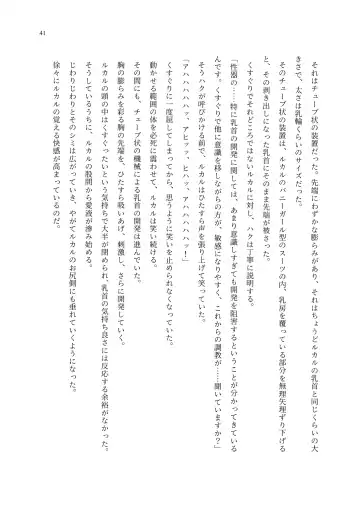 それはチューブ状の装置だった。先端にわずかな膨らみがあり、それはちょうどルカルの乳首と同じくらいの大
きさで、太さは乳輪くらいのサイズだった。
そのチューブ状の装置は、ルカルのバニーガール型のスーツの内、乳房を覆っている部分を無理矢理ずり下げる
と、その剥き出しになった乳首にそのまま先端が被さった。
くすぐりでそれどころではないルカルに対し、ハクは丁寧に説明する。
「性器の……特に乳首の開発に関しては、あまり意識しすぎても開発を阻害するということが分かってきている
んです。くすぐりで他に意識を移しながらの方が、敏感になりやすく、これからの調教が……聞いていますか?」
「アハハハハハッ、アヒッッ、ヒハッ、アハハハハハッ!」
そうハクが呼びかける前で、ルカルはひたすら声を張り上げて笑っていた。
くすぐりに一度屈してしまってから、思うように笑いを止められなくなっていた。
動かせる範囲の体を必死に震わせて、ルカルは笑い続ける。
その間にも、チューブ状の機械による乳首の開発は進んでいた。
胸の膨らみを彩る胸の先端を、ひたすら吸いあげ、刺激し、さらに開発していく。
ルカルの頭の中はくすぐったいという気持ちで大半が閉められ、乳首の気持ち良さには反応する余裕がなかった。
そうしているうちに、ルカルの股間から愛液が滲み始める。
じわりじわりとそのシミは広がっていき、やがてルカルのお尻側にも垂れていくようになった。
徐々にルカルの覚える快感が高まっているのだ。
41